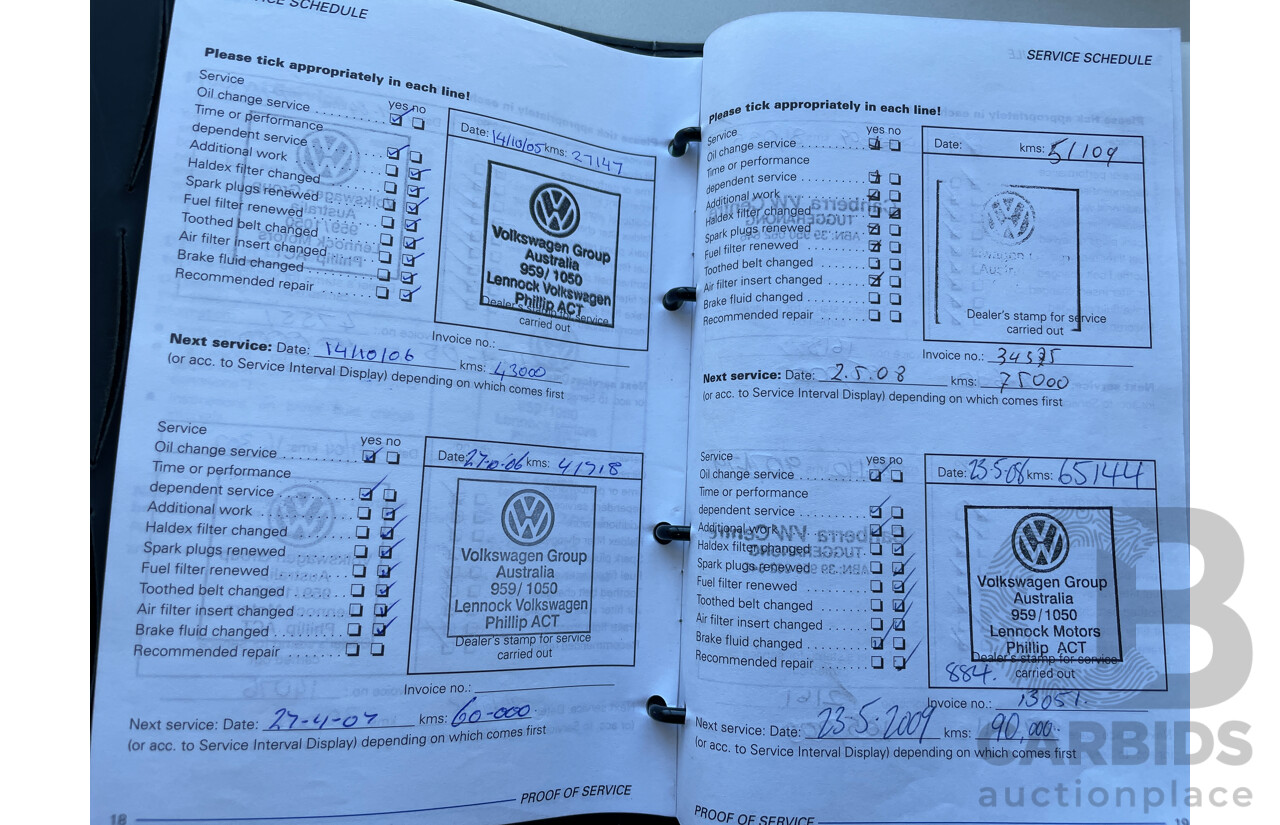 SERVICE SCHEDULE
Please tick appropriately in each line!
Service
yes no
Oil change service
Time or performance
dependent service
Additional work
Haldex filter changed
Spark plugs renewed
Fuel filter renewed
Toothed belt changed
Air filter insert changed
Brake fluid changed
Recommended repair
Date: 14/10/05 kms: 27147
Volkswagen Group
Australia
959/1050
Lennock Volkswagen
Phillip ACT
Dealer's stamp for service
carried out
Invoice no.:
Next service: Date: 14/10/06 kms: 43000
(or acc. to Service Interval Display) depending on which comes first
Service
yes no
Oil change service
Time or performance
dependent service
Additional work
Haldex filter changed
Spark plugs renewed
Fuel filter renewed
Toothed belt changed
Air filter insert changed
Brake fluid changed
Recommended repair
Date: kms: 41718
Volkswagen Group
Australia
959/1050
Lennock Volkswagen
Phillip ACT
Dealer's stamp for service
carried out
Invoice no.:
Next service: Date: 27-4-07 kms: 60-000
(or acc. to Service Interval Display) depending on which comes first
18
PROOF OF SERVICE
SERVICE SCHEDULE
Please tick appropriately in each line!
Service
yes no
Oil change service
Time or performance
dependent service
Additional work
Haldex filter changed
Spark plugs renewed
Fuel filter renewed
Toothed belt changed
Air filter insert changed
Brake fluid changed
Recommended repair
Date: kms: 51109
Dealer's stamp for service
carried out
Invoice no.:
Next service: Date: 2.5.08 kms: 75000
(or acc. to Service Interval Display) depending on which comes first
Service
yes no
Oil change service
Time or performance
dependent service
Additional work
Haldex filter changed
Spark plugs renewed
Fuel filter renewed
Toothed belt changed
Air filter insert changed
Brake fluid changed
Recommended repair
Date: 23-5-08 kms: 65144
Volkswagen Group
Australia
959/1050
Lennock Motors
Phillip ACT
Dealer's stamp for service
884. carried out
Invoice no.: 13051.
Next service: Date: 23-5-2009 kms: 90,000
(or acc. to Service Interval Display) depending on which comes first
PROOF OF SERVICE
19
CARBIDS
auctionplace